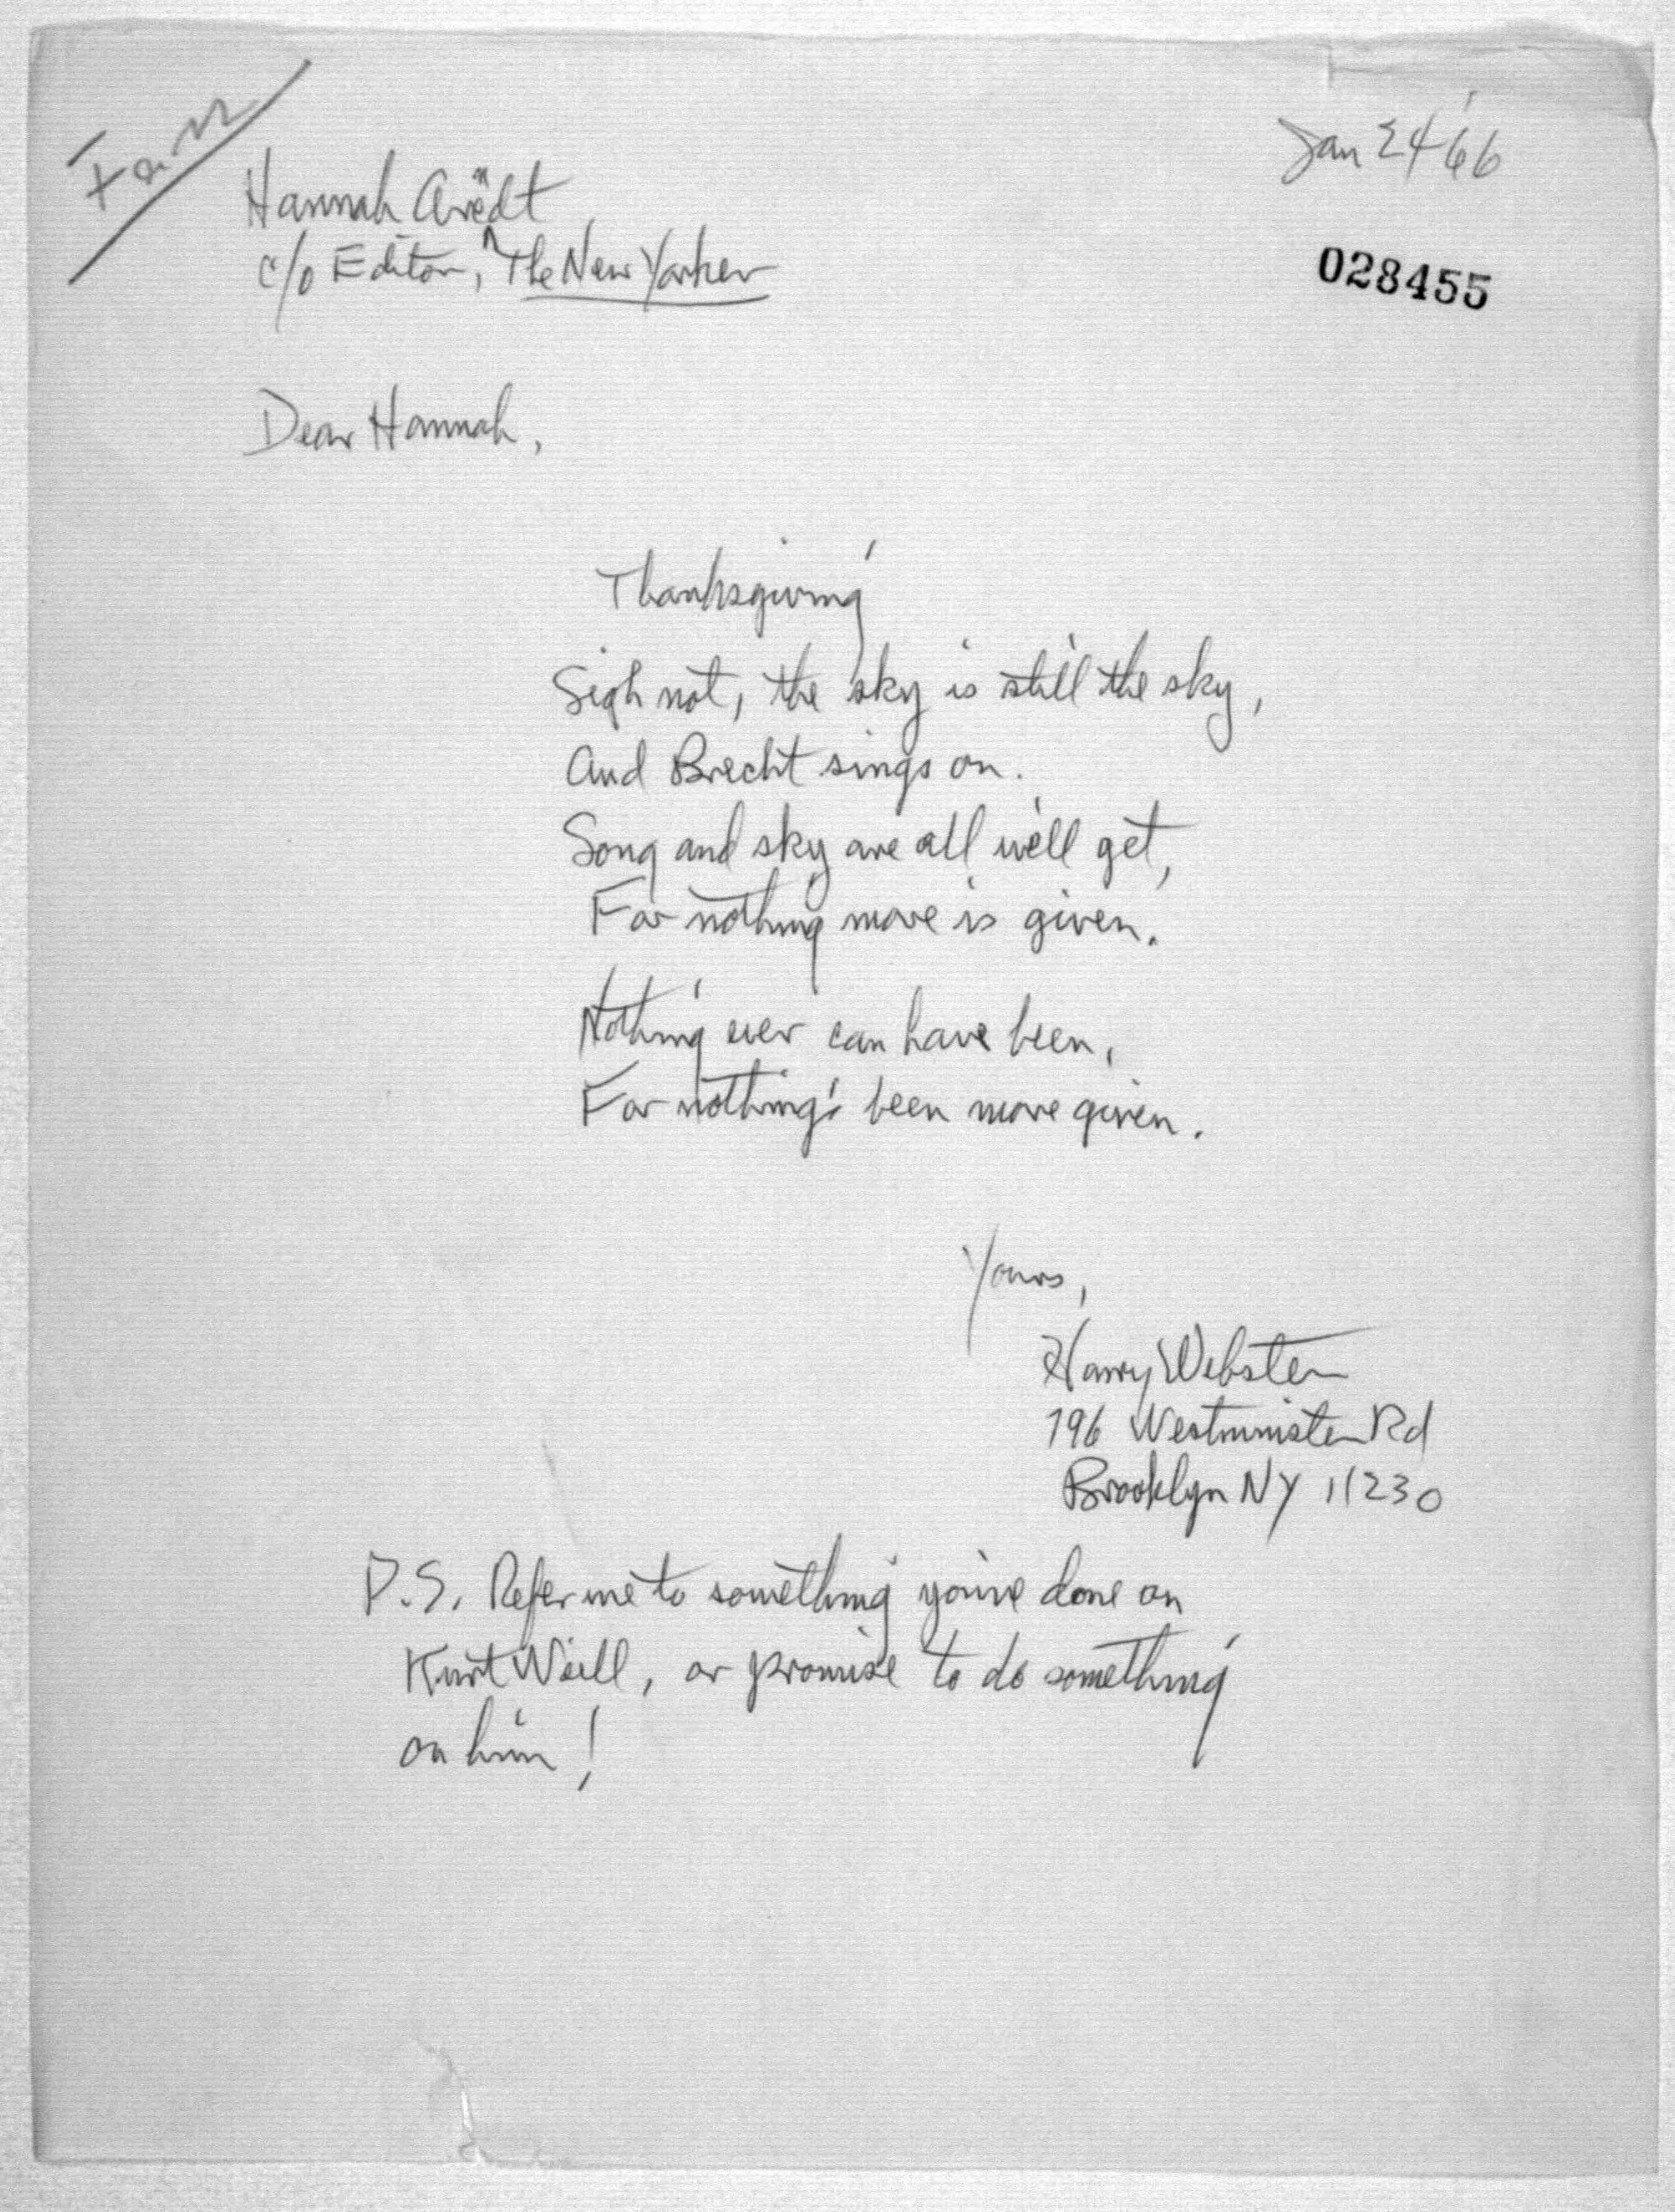 Fan
Jan 24 '66
Hannah Arendt
c/o Editor, The New Yorker
028455
Dear Hannah,
Thanksgiving
Sigh not, the sky is still the sky,
And Brecht sings on.
Song and sky are all we'll get,
For nothing more is given.
Nothing ever can have been,
For nothing's been more given.
Yours,
Harry Webster
796 Westminster Rd
Brooklyn NY 11230
P.S. Refer me to something you've done on
Kurt Weill, or promise to do something
on him!